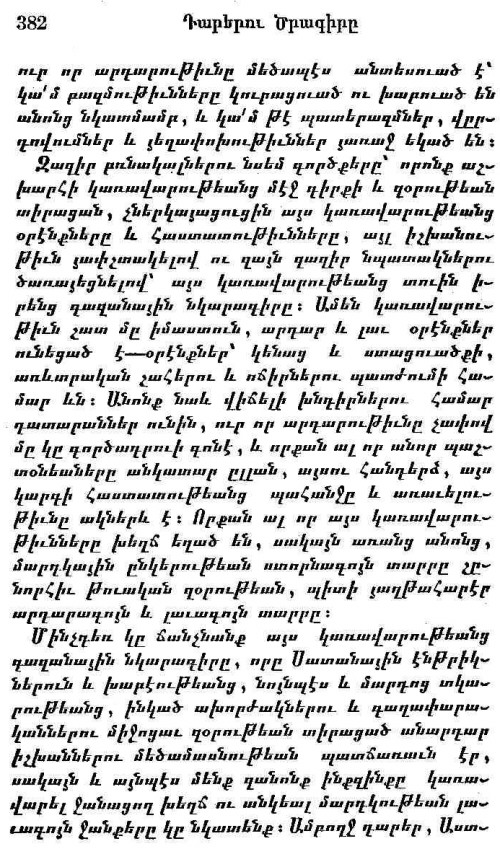 382 Դարերու Ծրագիրը
ուր որ արդարութիւնը մեծապէս անտեսուած է՝
կա՛մ բազմութիւնները կուրացուած ու խաբուած են
անոնց նկատմամբ, և կա՛մ թէ պատերազմներ, վըր-
դովումներ և յեղափոխութիւններ յառաջ եկած են։
Չազիր բռնակալներու նսեմ գործքերը՝ որոնք աշ-
խարհի կառավարութեանց մէջ դիրքի և զօրութեան
տիրացան, չներկայացուցին այս կառավարութեանց
օրէնքները և Հաստատութիւնները, այլ իշխանու-
թիւն յափշտակելով ու զայն գաղիր նպատակներու
ծառայեցնելով՝ այս կառավարութեանց տուին ի-
րենց գազանային նկարագիրը։ Ամեն կառավարու-
թիւն շատ մը իմաստուն, արդար և լաւ օրէնքներ
ունեցած է—օրէնքներ՝ կենաց և ստացուածքի,
առևտրական շահերու և ոճիրներու պատժումի Հա-
մար ևն։ Անոնք նաև վիճելի խնդիրներու Համար
դատարաններ ունին, ուր որ արդարութիւնը չափով
մը կը գործադրուի գոնէ, և որքան ալ որ անոր պաշ-
տօնեաները անկատար ըլլան, այսու Հանդերձ, այս
կարգի Հաստատութեանց պահանջը և առաւելու-
թիւնը ակներև է։ Որքան ալ որ այս կառավարու-
թիւնները խեղճ եղած են, սակայն առանց անոնց,
մարդկային ընկերութեան ստորնագոյն տարրը շը-
նորհիւ թուական զօրութեան, պիտի յաղթահարէր
արդարագոյն և լաւագոյն տարրը։
Մինչդեռ կը ճանչնանք այս կառավարութեանց
գազանային նկարագիրը, որը Սատանային էնթրիկ-
ներուն և խաբէութեանց, նոյնպէս և մարդոց տկա-
րութեանց, ինկած ախորժակներու և գաղափարա-
կաններու միջոցաւ զօրութեան տիրացած անարդար
իշխաններու մեծամասնութեան պատճառաւն էր,
սակայն և այնպէս մենք զանոնք ինքզինքը կառա-
վարել ջանացող խեղճ ու անկեալ մարդկութեան լա-
ւագոյն ջանքերը կը նկատենք։ Ամբողջ դարեր, Աստ-